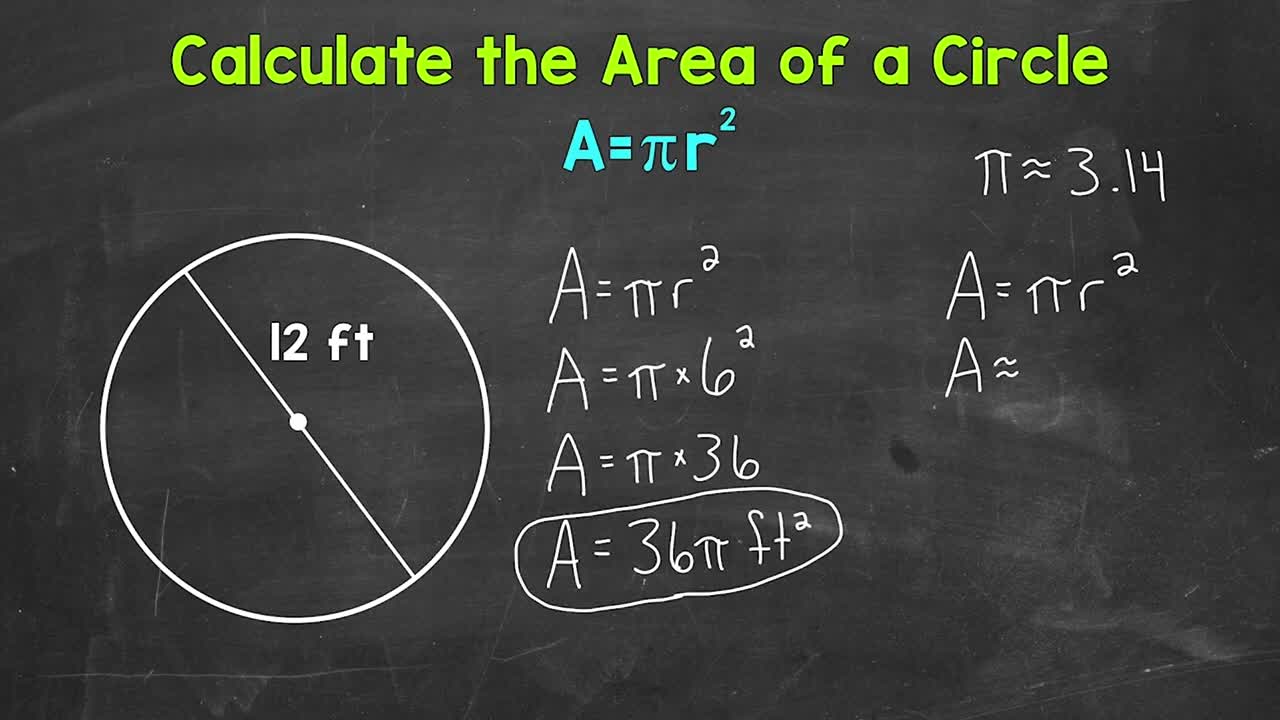 Calculate the Area of a Circle
A=πr²
π≈3.14
12 ft
A=πr²
A=π×6²
A=π×36
A=36π ft²
A=πr²
A≈